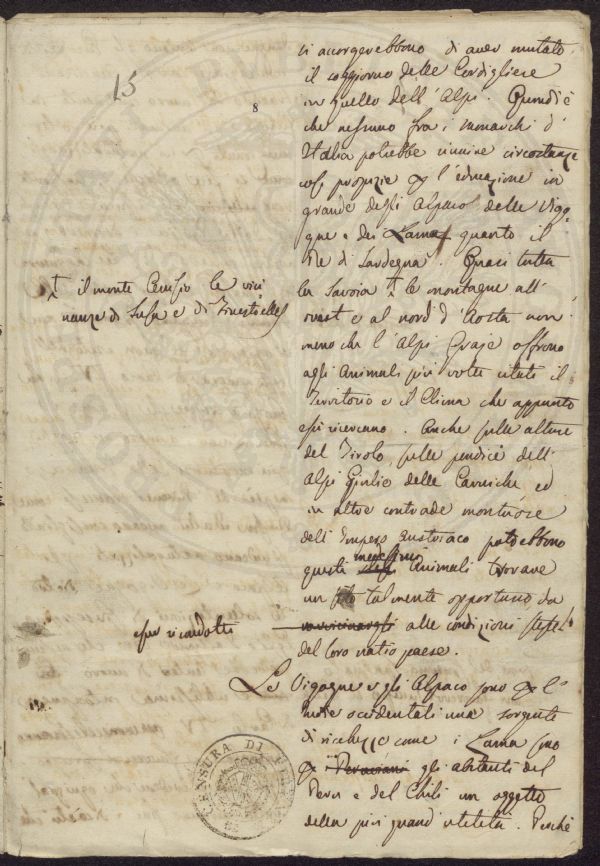 15
8
si accorgerebbono di aver mutato
il soggiorno delle Cordigliere
in quello dell'Alpi. Quindi è
che nessuno fra i monarchi d'
Italia potrebbe riunire circostanze
così propizie per l'educazione in
grande degli Alpaco delle Vigo-
gne e dei Lama quanto il
Re di Sardegna. Quasi tutta
la Savoia † le montagne all'
ovest e al nord d'Aosta non
meno che l'Alpi Graje offrono
agli Animali più volte citati il
Territorio e il Clima che appunto
essi ricercano. Anche sulle alture
del Tirolo, sulle pendici dell'
Alpi Giulie delle Carniche ed
in altre contrade montuose
dell'Impero Austriaco potrebbono
questi medesimi Animali trovare
un sito talmente opportuno da
alle condizioni stesse
del loro natio paese.
Le Vigogne e gli Alpaco sono per l'
occidentali una sorgente
di ricchezze come i Lama sono
per i Peruviani gli abitanti del
Perù e del Chili un oggetto
della più grand'utilità. Perchè
† il monte Cenisio le vici
nanze di Susa e di
esser ricondotti
CENSURA DI